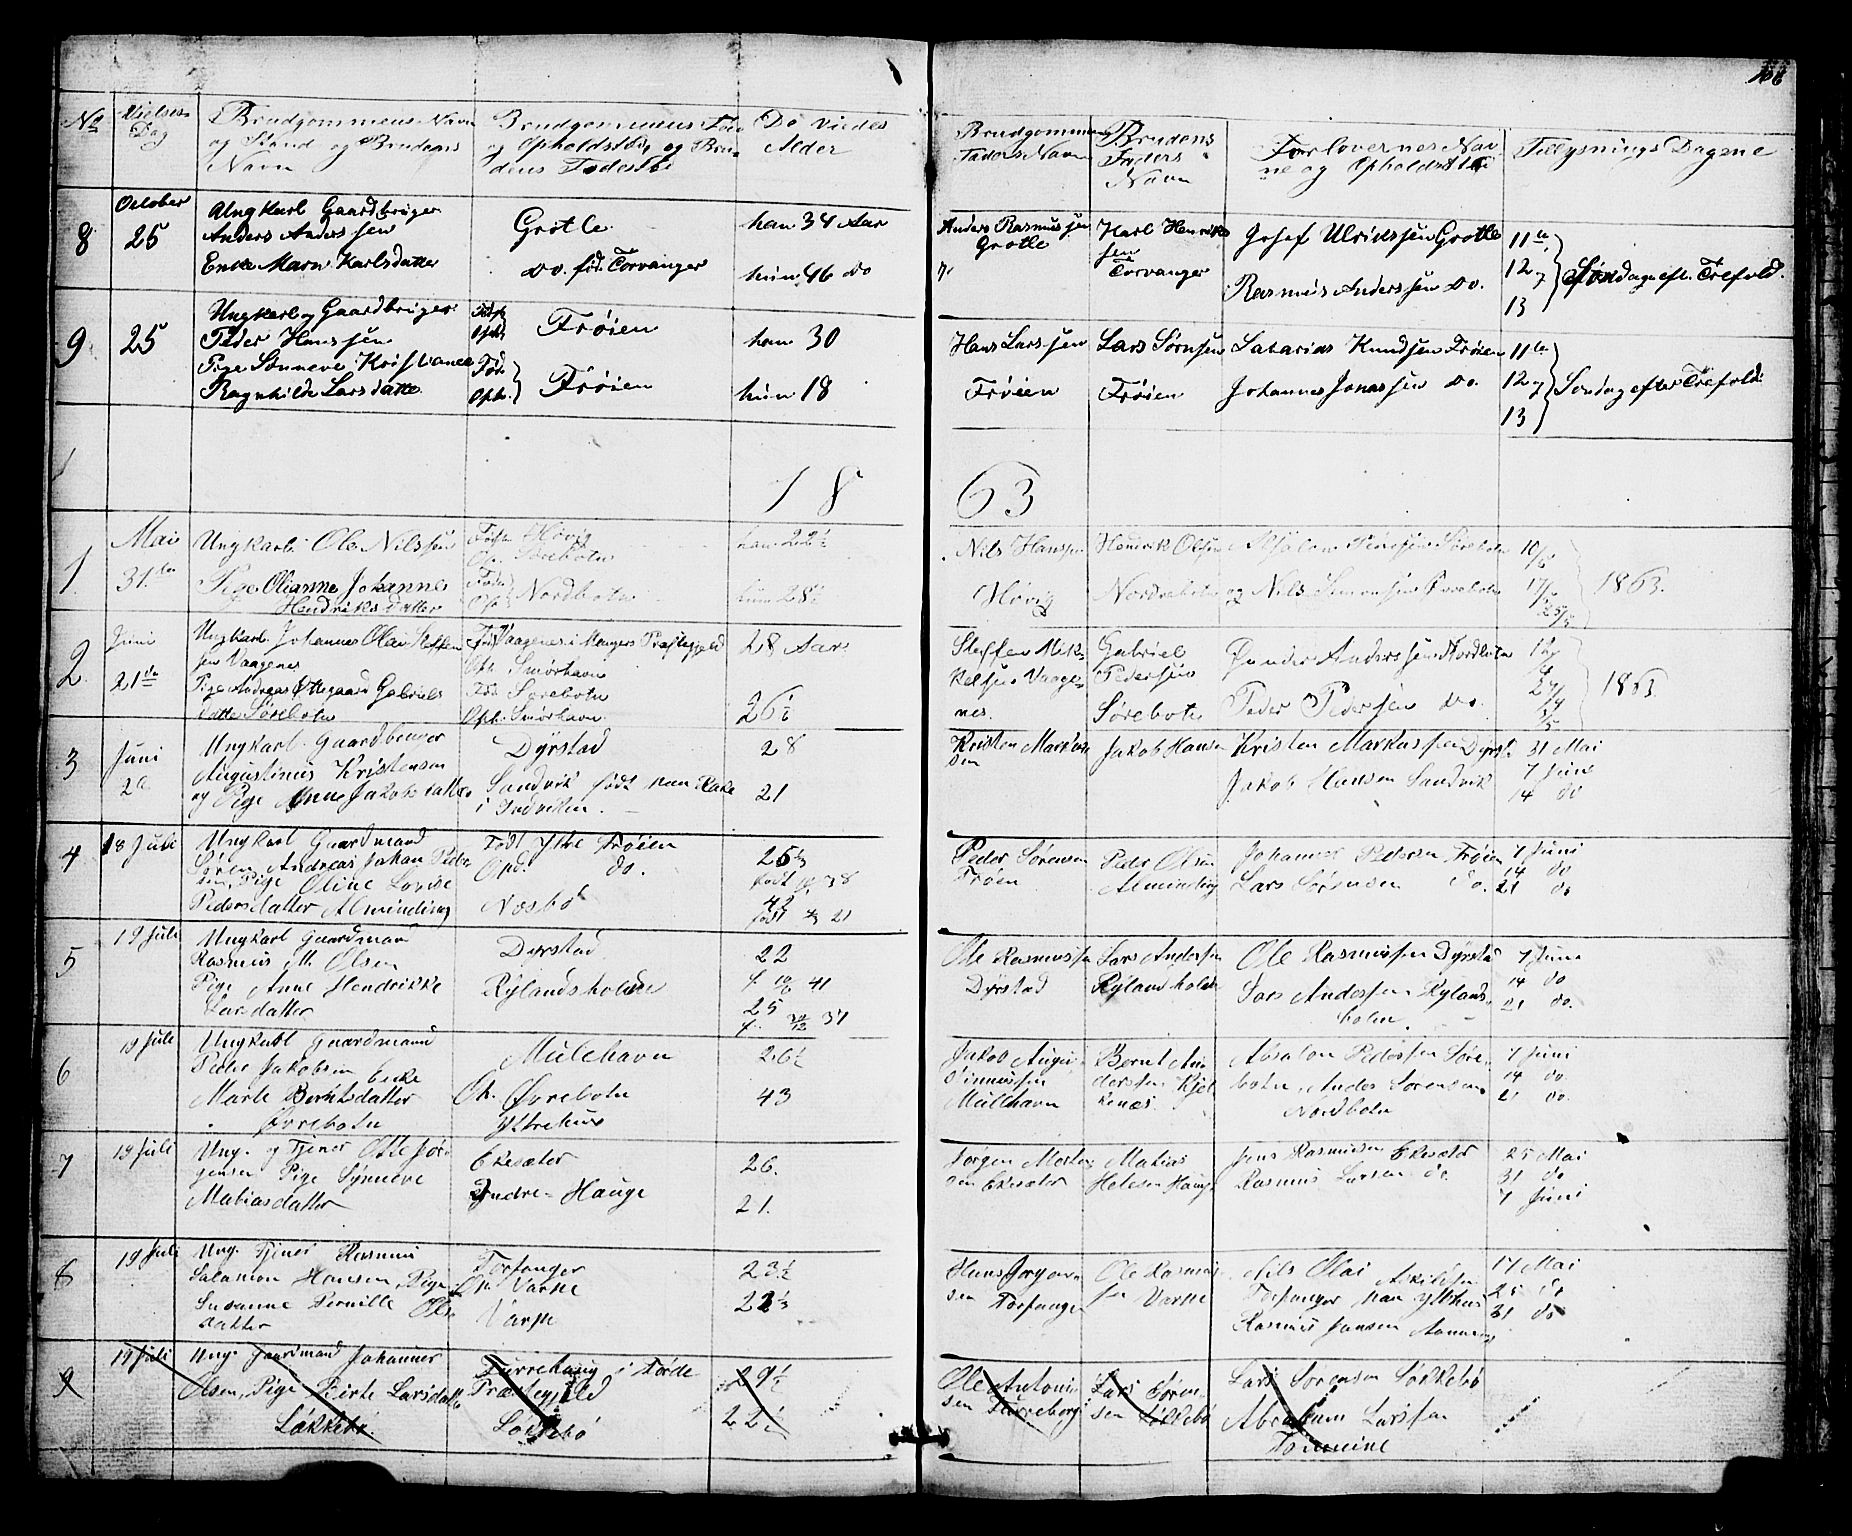 No
Vielses-
Dag
Brudgommens Navn
og Stand og Brudens
Navn
Brudgommens Føde
og Opholdsted, og Bru-
dens Fødested
De Viedes
Alder
Brudgommens
Faders Navn
Brudens
Faders
Navn
Forlovernes Nav-
ne og Opholdsted
Tillysnings Dagene
8
October
25
Ungkarl Gaardbruger
Anders Anderssen
Enke Karlsdatter
Grotle
do. fød. Torvanger
han 34 Aar
hun 46 do
Anders Rasmussen
Grotle
Karl Henrik-
sen
Torvanger
Josef Ulrikssen Grotle
Rasmus Anderssen do.
11te
12
13
Søndag eft. Trefold.
9
25
Ungkarl og Gaardbruger
Peder Hanssen
Pige Sønneve Kristiane
Ragnhilde Larsdatter
Oph.
Frøien
Fød.
Oph.
Frøien
han 30
hun 18
Hans Larssen
Frøien
Lars Sørnsen
Frøien
Knudsen Frøien
Johannes Jonassen do.
11te
12
13
Søndag efter Trefold.
18 63
1
Mai
31.
Ungkarl Ole Nilssen
Pige Olianne Johannes
Hendriksdatter
Høvig
Sørebotn
Nordbotn
han 22½
hun 28½
Nils Hanssen
Høvig
Hendrik Olsen
Nordrebotn
Sørebotn
og Nils Simonsen
10/5
17/5
25/5
1863.
2
Juni
21de
Ungkarl Johannes Olai Steffen
sen Vaagenes
Pige Andreas Gabriels
datter Sørebotn
Vaagenes i Mangers Præstegjeld
Oph. Smørhavn
Fød. Sørebotn
Oph. Smørhavn
28 Aar
26½
Steffen Mik-
kelsen Vaage-
nes.
Gabriel
Pedersen
Sørebotn
Anderssen Nordbotn
Peder Pedersen do.
1863.
3
Juni
Ungkarl Gaardbruger
Augustinus Kristensen
og Pige Anne Jakobsdatter
Dyrstad
Sandvik født paa
i Indviken.
28
21
Kristen Markus
sen
Jakob Hansen
Kristen Markussen Dyrst.
Jakob Hansen Sandvik
31 Mai
7 Juni
14 do
4
18 Juli
Ungkarl Gaardmand
Søren Andreas Johan Peder
sen, Pige Oline Lovise
Pedersdatter Alminding
Født Ytre Frøien
Opd. do.
Næsbø
25½
født 38
42
født 21
Peder Sørensen
Frøen
Peder Olsen
Alminding
Johannes Pedersen Frøien
Lars Sørensen do.
7 Juni
14 do
21 do
5
19 Juli
Ungkarl Gaardman
Rasmus M. Olsen
Pige Anne Hendrikke
Larsdatter
Dyrstad
Rylandsholme
22
f. 41
25
f. 37
Ole Rasmussen
Dyrstad
Lars Andersen
Rylandholm
Ole Rasmussen Dyrstad
Lars Anderssen Rylands-
holm.
7 Juni
14 do
21 do.
6
19 Juli
Ungkarl Gaardmand
Peder Jakobsen Enke
Marte Berntsdatter
Øvrebotn
Mulehavn
Oh. Øvrebotn
Ytrehus
26½
43
Jakob Augu-
stinussen
Mulehavn
Bernt An-
derssen Kjel
kenæs.
Absalon Pederssen Søre-
botn, Anders Sørensen
Nordbotn
7 Juni
14 do.
21 do.
7
19 Juli
Ung. og Tjener Otte Jør-
gensen Pige Synneve
Matiasdatter
Ekesæter
Indre-Hauge
26.
21.
Jørgen Morten
sen Ekesæter
Matias
Helesen Hauge
Jens Rasmusen Ekesæter
Rasmus Larsen do.
25 Mai
31 do
7 Juni
8
19 Juli
Ung. Tjener Rasmus
Salamon Hansen, Pige
Susanne Pernille Ols
datter
Torfanger
Oh. Varpe
Varpe
23½
22½
Hans Jørgen-
sen Torfanger
Ole Rasmus
sen Varpe
Nils Olai
Torfanger paa Ytrhus
Rasmus Jansen
17 Mai
25 do
31 do
9
19 Juli
Ung. Gaardmand Johannes
Olsen, Pige Birte Larsdatter
Løkkebø.
i Førde
Præstegjeld
Løkkebø
29½
22½
Ole Antoni-
sen
Lars Søren-
sen Løkkebø
Lars Sørensen Løkkebø
Abraham Larssen